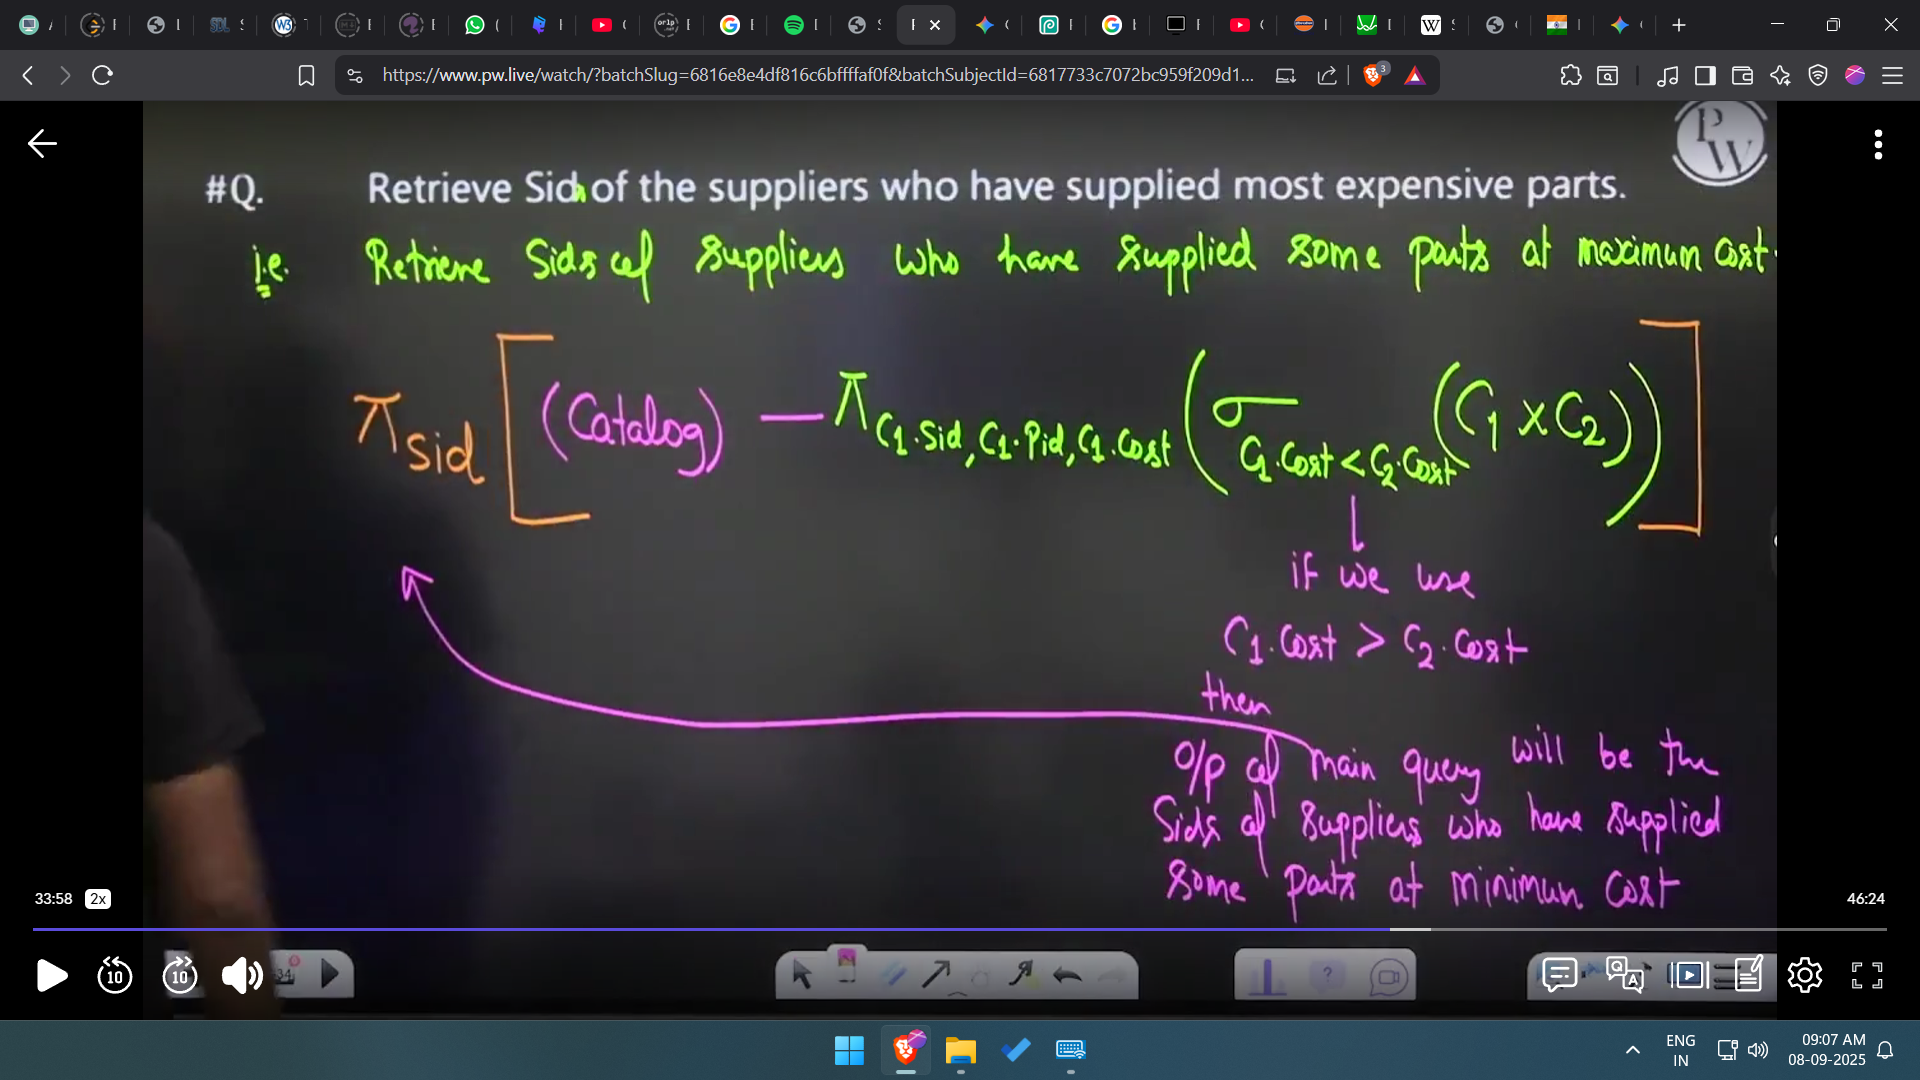 https://www.pw.live/watch/?batchSlug=6816e8e4df816c6bffffaf0f&batchSubjectId=6817733c7072bc959f209d1...
3
PW
#Q. Retrieve Sids of the suppliers who have supplied most expensive parts.
i.e. Retrieve Sids of suppliers who have supplied some parts at maximum cost.
π sid [ (Catalog) — π C1.Sid, C1.Pid, C1.Cost ( σ C1.Cost < C2.Cost (C1 X C2) ) ]
if we use
C1.Cost > C2.Cost
then
O/p of main query will be the
Sids of suppliers who have supplied
some parts at minimum cost
33:58 2x 46:24
10 10
ENG
IN
09:07 AM
08-09-2025